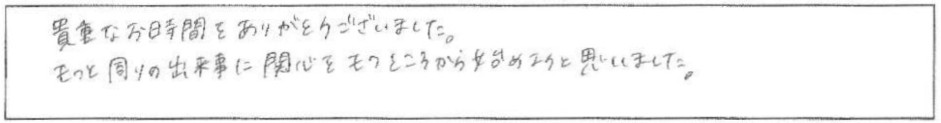 貴重なお時間をありがとうございました。
もっと周りの出来事に関心をもつところから始めようと思いました。